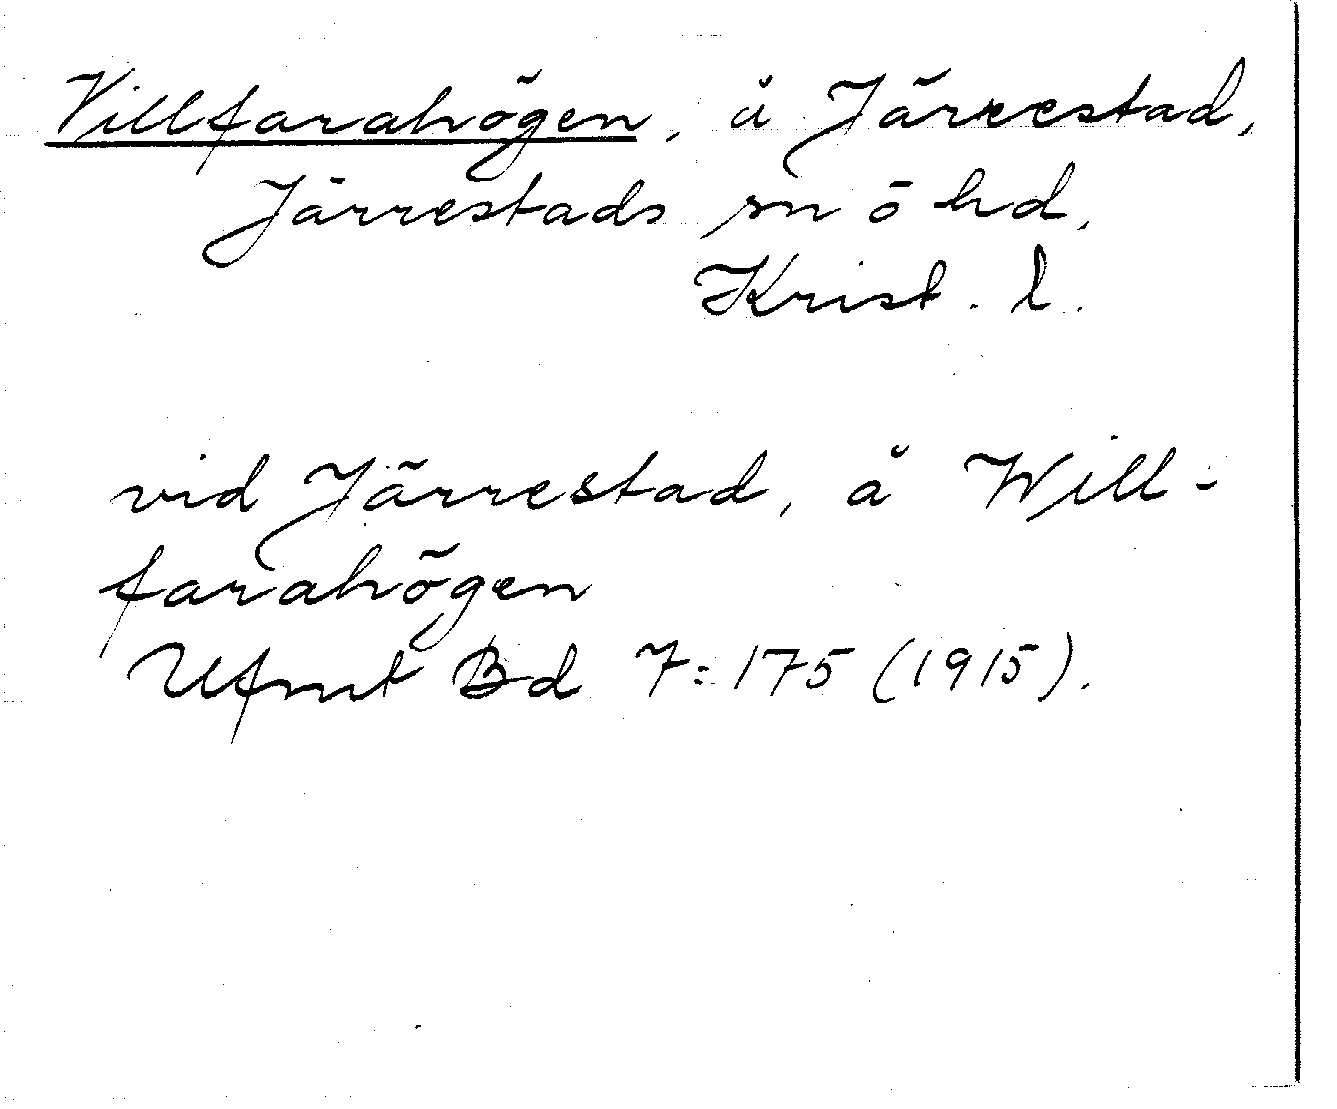 Villfarahögen, å Järrestad,
Järrestads sn ö hd,
Krist. l.
vid Järrestad, å Will-
farahögen
Ufmt Bd 7:175 (1915).